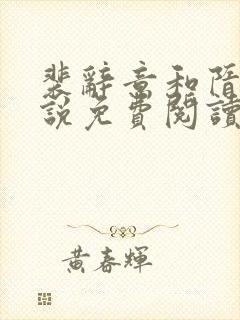 裴辭意和隋
說免費閱讀
黃春輝